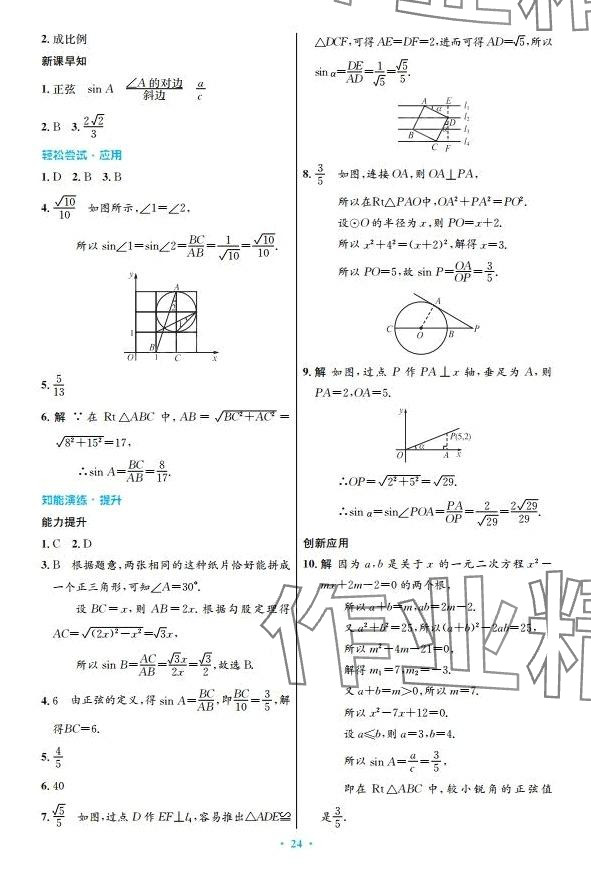 2. 成比例
新课早知
1. 正弦 sin A ∠A的对边/斜边 a/c
2. B 3. 2√2/3
轻松尝试·应用
1. D 2. B 3. B
4. √10/10 如图所示,∠1=∠2,
所以 sin∠1=sin∠2=BC/AB=1/√10=√10/10.
y
A
2
1
1
B
O 1 C x
5. 5/13
6. 解 ∵在 Rt△ABC 中, AB = √(BC²+AC²) =
√(8²+15²)=17,
∴sin A=BC/AB=8/17.
知能演练·提升
能力提升
1. C 2. D
3. B 根据题意,两张相同的这种纸片恰好能拼成
一个正三角形,可知∠A=30°.
设 BC=x,则 AB=2x. 根据勾股定理得
AC=√((2x)²−x²)=√3x,
所以 sin B=AC/AB=√3x/2x=√3/2,故选 B.
4. 6 由正弦的定义,得 sin A=BC/AB,即BC/10=3/5,解
得BC=6.
5. 4/5
6. 40
7. √5/5 如图,过点 D 作 EF⊥l₁,容易推出△ADE≌
△DCF,可得 AE=DF=2,进而可得 AD=√5,所以
sin α=DE/AD=1/√5=√5/5.
A E l₁
α l₂
D
B l₃
C F l₄
8. 3/5 如图,连接 OA,则 OA⊥PA,
所以在Rt△PAO中,OA²+PA²=PO².
设⊙O 的半径为 x,则 PO=x+2.
所以 x²+4²=(x+2)²,解得 x=3.
所以 PO=5,故 sin P=OA/OP=3/5.
A
C O B P
9. 解 如图,过点 P 作 PA⊥x 轴,垂足为 A,则
PA=2,OA=5.
y
P(5,2)
α
O A x
∴OP=√(2²+5²)=√29.
∴sin α=sin∠POA=PA/OP=2/√29=2√29/29.
创新应用
10. 解 因为 a,b 是关于 x 的一元二次方程 x²−
mx+2m−2=0 的两个根,
所以 a+b=m,ab=2m−2.
又 a²+b²=25,所以(a+b)²−2ab=25,
所以 m²−4m−21=0,
解得 m₁=7,m₂=−3.
又 a+b=m>0,所以 m=7.
所以 x²−7x+12=0.
设 a≤b,则 a=3,b=4.
所以 sin A=a/c=3/5,
即在 Rt△ABC 中,较小锐角的正弦值
是3/5.
· 24 ·
作业精
作业精